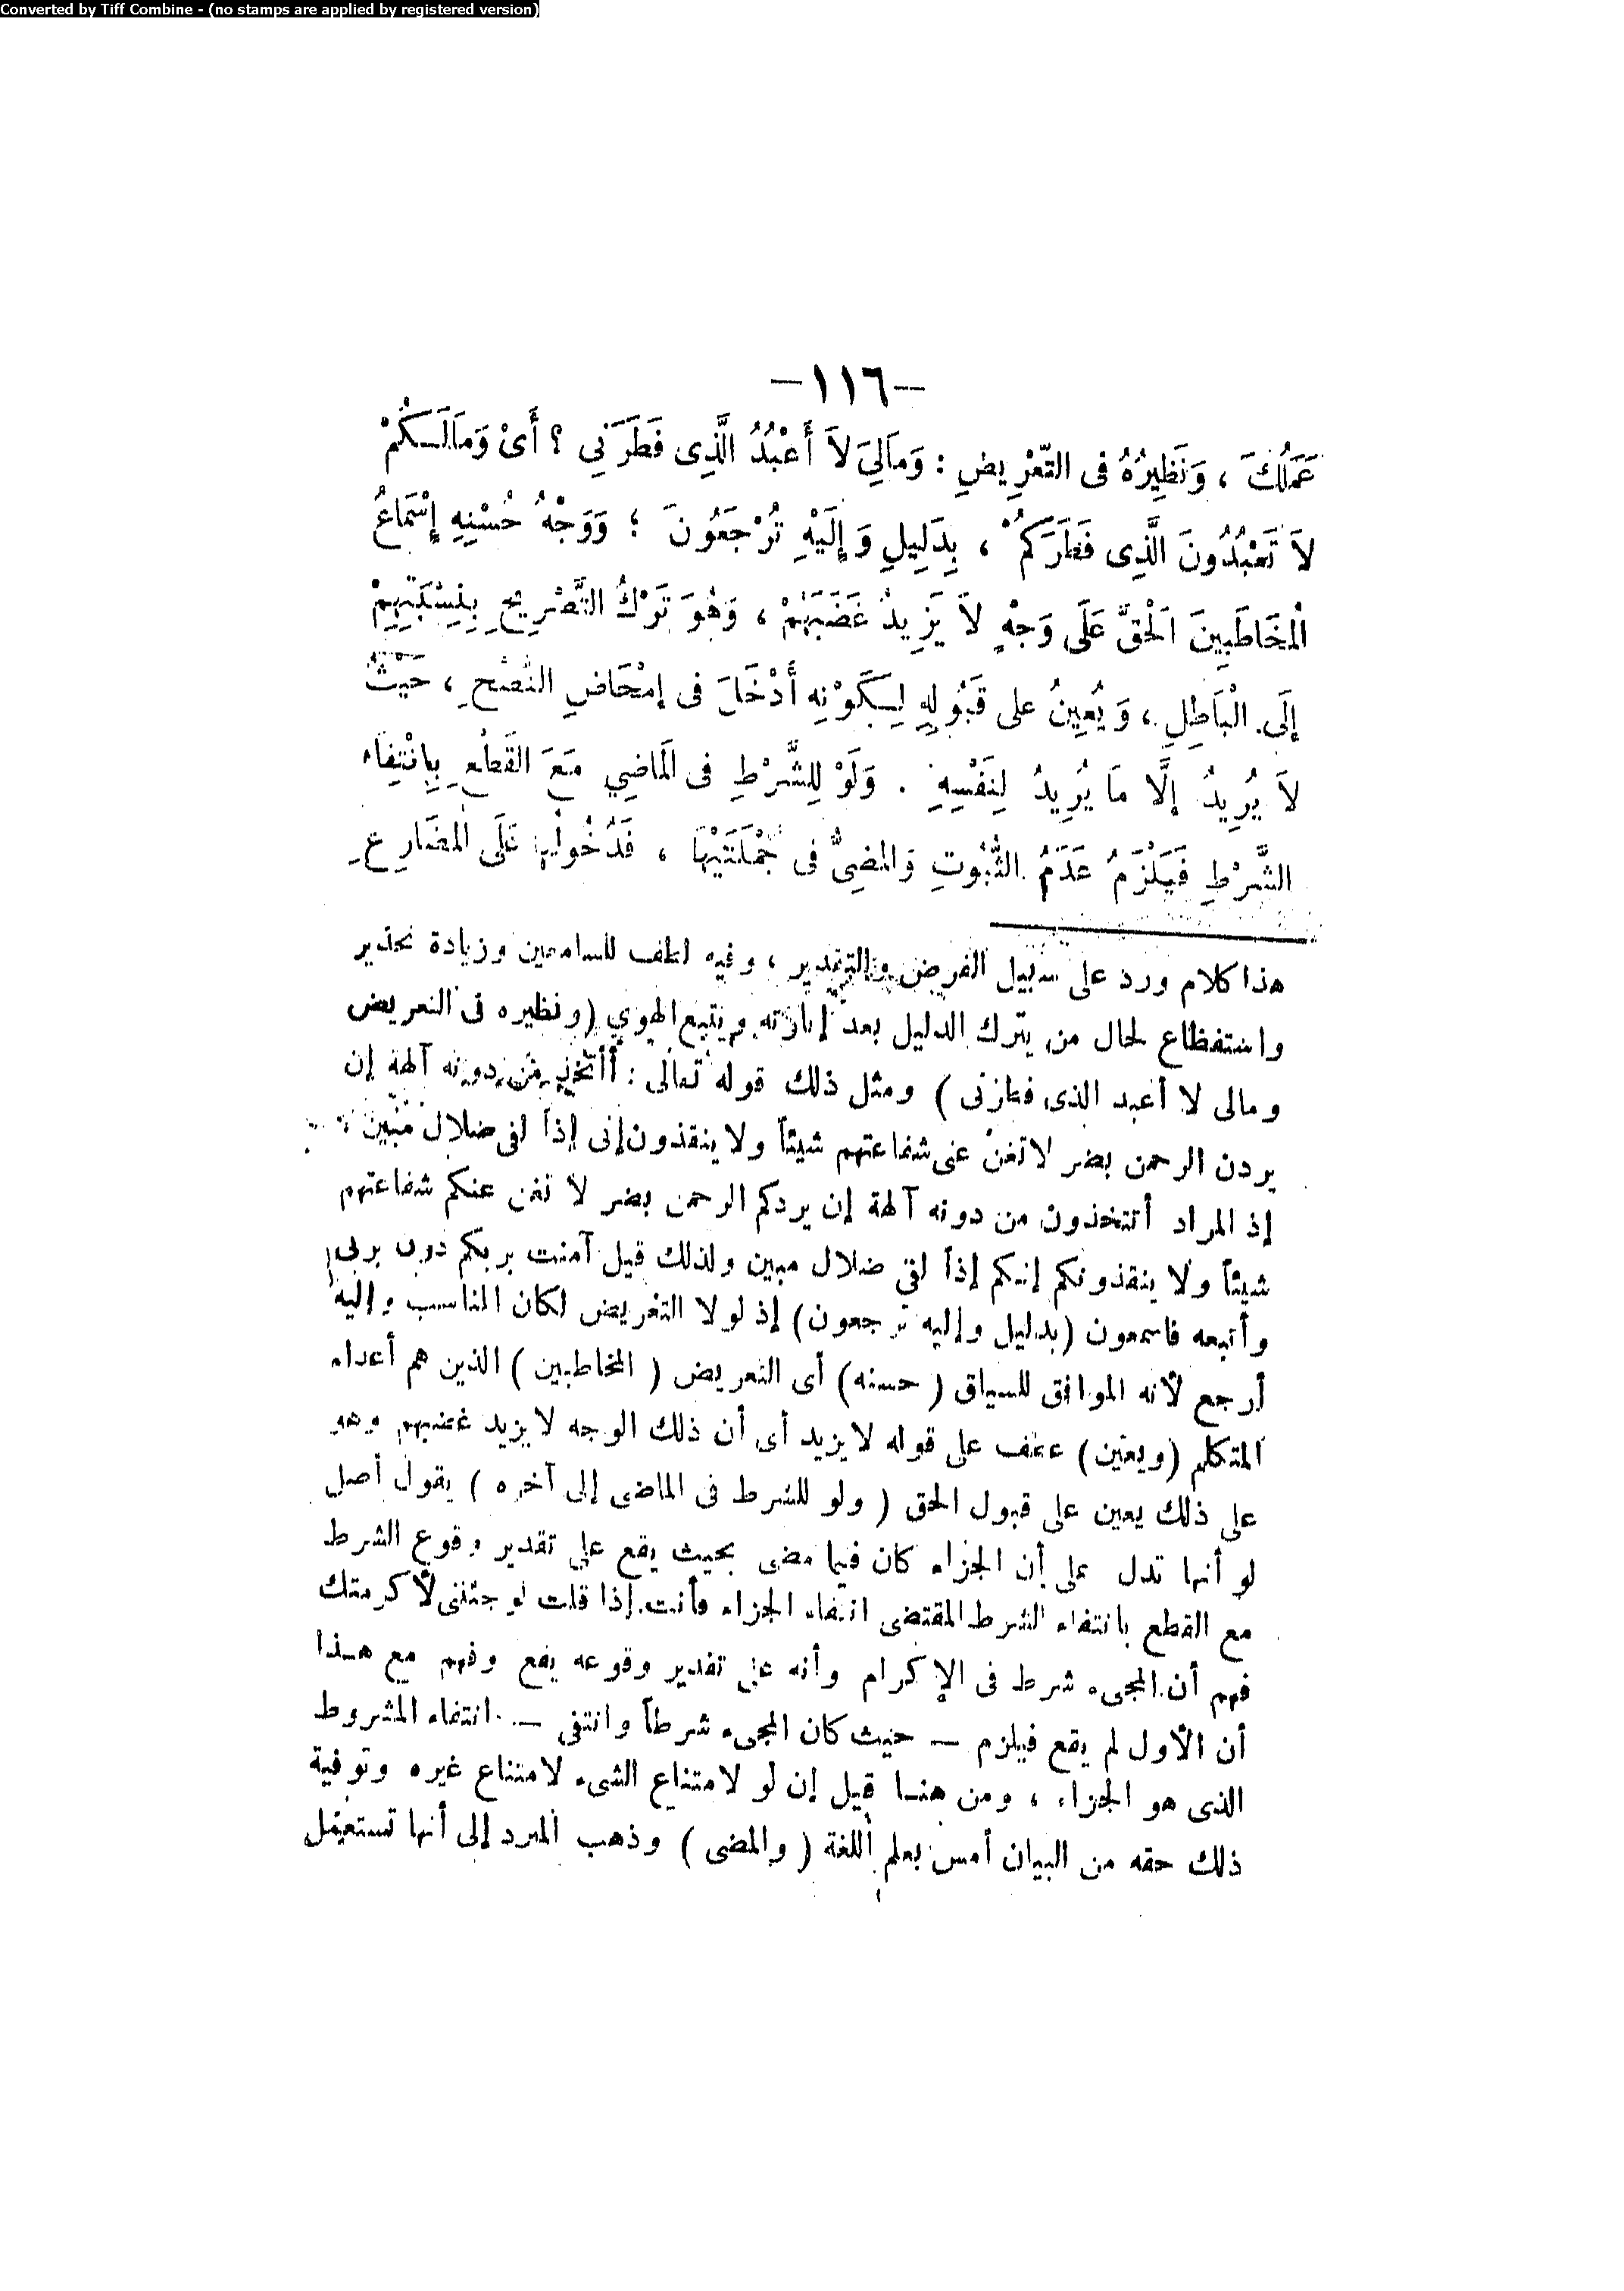 Converted by Tiff Combine - (no stamps are applied by registered version)
–١١٦–
عَمَلُكَ ، وَنَظِيرُهُ فى التَّعْرِيضِ : وَمَالِىَ لاَ أَعْبُدُ الَّذِى فَطَرَنِى ؟ أَىْ وَمَالَكُمْ
لاَ تَعْبُدُونَ الَّذِى فَطَرَكُمْ ، بِدَلِيلِ وَإِلَيْهِ تُرْجَعُونَ ؛ وَوَجْهُ حُسْنِهِ إِسْمَاعُ
الْمُخَاطَبِينَ الْحَقَّ عَلَى وَجْهٍ لاَ يَزِيدُ غَضَبَهُمْ ، وَهُوَ تَرْكُ التَّصْرِيحِ بِنِسْبَتِهِمْ
إِلَى الْبَاطِلِ ، وَيُعِينُ على قَبُولِهِ لِكَوْنِهِ أَدْخَلَ فى إِمْحَاضِ النُّصْحِ ، حَيْثُ
لاَ يُرِيدُ إِلَّا مَا يُرِيدُ لِنَفْسِهِ . وَلَوْ لِلشَّرْطِ فى الْمَاضِي مَعَ الْقَطْعِ بِانْتِفَاءِ
الشَّرْطِ فَيَلْزَمُ عَدَمُ الثُّبُوتِ وَالْمُضِىُّ فى جُمْلَتَيْهَا ، فَدُخُولُهَا عَلَى الْمُضَارِعِ
هذا كلام ورد على سبيل الفرض والتقدير ، وفيه لطف للسامعين وزيادة تحذير
واستفظاع لحال من يترك الدليل بعد إنارته ويتبع الهوي (ونظيره فى التعريض
ومالى لا أعبد الذى فطرنى ) ومثل ذلك قوله تعالى : أأتخذ من دونه آلهة إن
يردن الرحمن بضر لا تغن عنى شفاعتهم شيئاً ولا ينقذون إنى إذاً لفى ضلال مبين
إذ المراد أتتخذون من دونه آلهة إن يردكم الرحمن بضر لا تغن عنكم شفاعتهم
شيئاً ولا ينقذونكم إنكم إذاً لفى ضلال مبين ولذلك قيل آمنت بربكم دون بربى
وأتبعه فاسمعون (بدليل وإليه ترجعون) إذ لولا التعريض لكان المناسب وإليه
أرجع لأنه الموافق للسياق ( حسنه) أى التعريض ( المخاطبين ) الذين هم أعداء
المتكلم (ويعين) عطف على قوله لا يزيد أى أن ذلك الوجه لا يزيد غضبهم وهو
على ذلك يعين على قبول الحق ( ولو للشرط فى الماضى إلى آخره ) يقول أصل
لو أنها تدل على أن الجزاء كان فيما مضى بحيث يقع على تقدير وقوع الشرط
مع القطع بانتفاء الشرط المقتضى انتفاء الجزاء فأنت إذا قلت لو جئتنى لأكرمتك
فهم أن المجىء شرط فى الإكرام وأنه على تقدير وقوعه يقع وفهم مع هـذا
أن الأول لم يقع فيلزم – حيث كان المجىء شرطاً وانتفى – انتفاء المشروط
الذى هو الجزاء ، ومن هنـا قيل إن لو لامتناع الشىء لامتناع غيره وتوفية
ذلك حقه من البيان أمس بعلم اللغة ( والمضى ) وذهب المبرد إلى أنها تستعمل